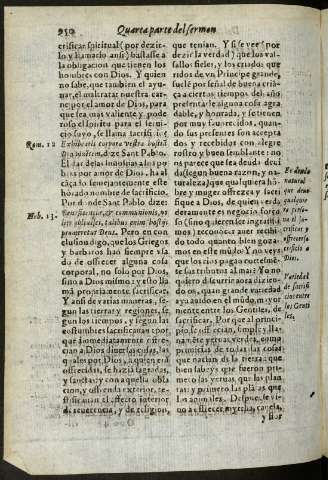 250 Quarta parte del sermon
crificar spiritual (por dezir-
lo y llamarlo ansi) bastasse a
la obligacion que tienen los
hombres con Dios. Y quien
no sabe, que tambien el ayu-
nar, el maltratar nuestra car-
ne por el amor de Dios, para
que sea mas valiente y pode
roso el spiritu para el serui-
cio suyo, se llama sacrificio
Rom. 12 Exhibeatis corpora vestra hostiã
Dia viuentem, dize Sant Pablo.
El dar de las limosnas a los
bres por amor de Dios, ha al
cãçado semejantemente este
honrado nombre de sacrificio.
Por donde Sant Pablo dize:
Heb. 13. Beneficentiæ, & communionis, no
lite obliuisci, talibus enim hostijs
promeretur Deus. Pero en con
clusion digo, que los Griegos
y barbaros han siempre vsa
do de offrecer alguna cosa
corporal, no solo por Dios,
sino a Dios mismo; y esto lla
ma propriamente sacrificar.
Y ansi de varias maneras, se-
gun las tierras y regiones, se
gun los tiempos, y segun las
costumbres sacrificauan por
que immediatamente offre-
cian a Dios diuersas cosas, las
quales por Dios, a quien erã
offrecidas, se hazia sagradas,
y sanctas: y con aquella obla
cion, y offrenda exterior, te-
stificauan el affecto interior
de reuerencia, y de religion,
que tenian. Y si se vee (por
dezir la verdad) que los va-
sallos fieles, y los criados que
ridos de vn Principe grande,
suelẽ por señal de buena criã
ça a ciertos tiempos del año
presentarle alguna cosa agra
dable, y honrada, y se tienen
por muy fauorecidos, quan-
do sus presentes son acepta
dos y recebidos con alegre
rostro, y buen semblante: no
nos parece que sea deuda deui
da segun buena razon, y na-
turaleza, que qualquiera hõ-
bre y muger offrezca y sacri
fique a Dios, de quien verda
deramente es negocio forço
so (sino queremos ser mal la-
mos) reconocer auer recibi
do todo quanto bien goza-
mos en este mũdo? Y no vaya
que los dos pagan cortesmẽ-
te sus tributos al mar? Yo no
quiero discurrir aora dizien-
do os, quan grande variedad
aya auido en el mũdo, mayor
mente entre los Gentiles, de
sacrificar. Por que al princi-
pio, se offrecian, simple y lla-
nanẽte yeruas verdes, como
primicias de todas las cosas
que nacian de la tierra: que
bien sabeys que fueron pri-
mero las yeruas, que las plan
tas; y primero las plãtas que
los animales. Despues, se vi-
no a offrecer, myrrha, canela,
y flor
Es deuda
natural
que
qualquie
ra persona
a sa-
crificar y
offrecer sa-
crificio a
Dios.
Variedad
de sacrifi
cios entre
los Genti
les.